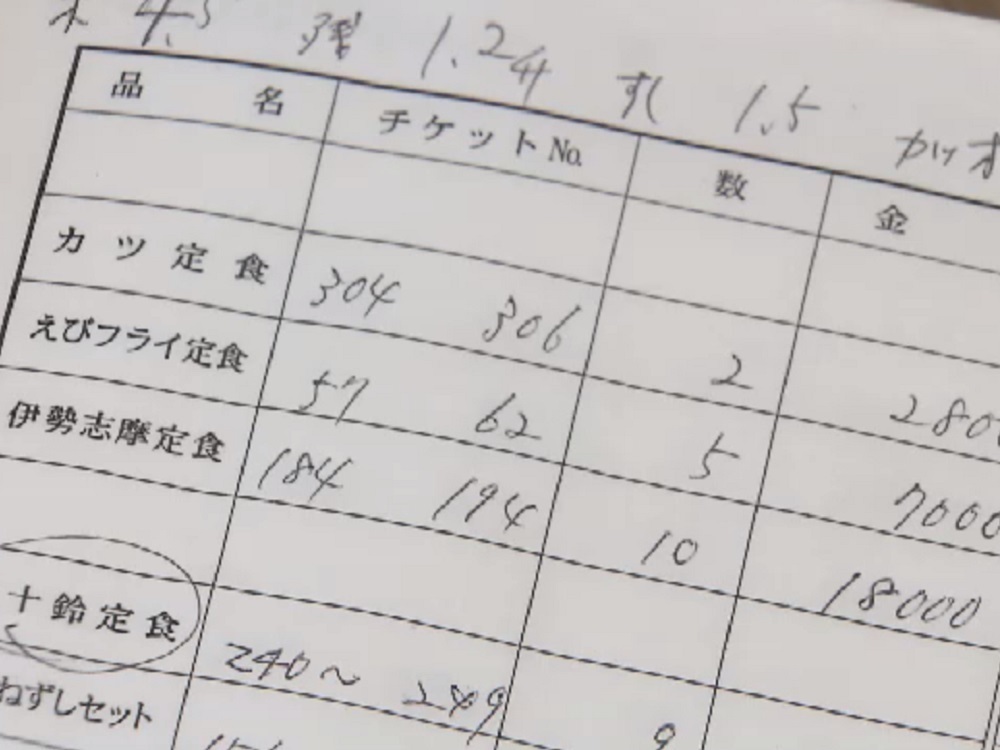 4.5 残 1.2升 すし 1.5 カツオ
品名 チケットNo. 数 金
カツ定食 304 306 2 2800
えびフライ定食 57 62 5 7000
伊勢志摩定食 184 194 10 18000
十鈴定食 240~ 249 9
ねずしセット